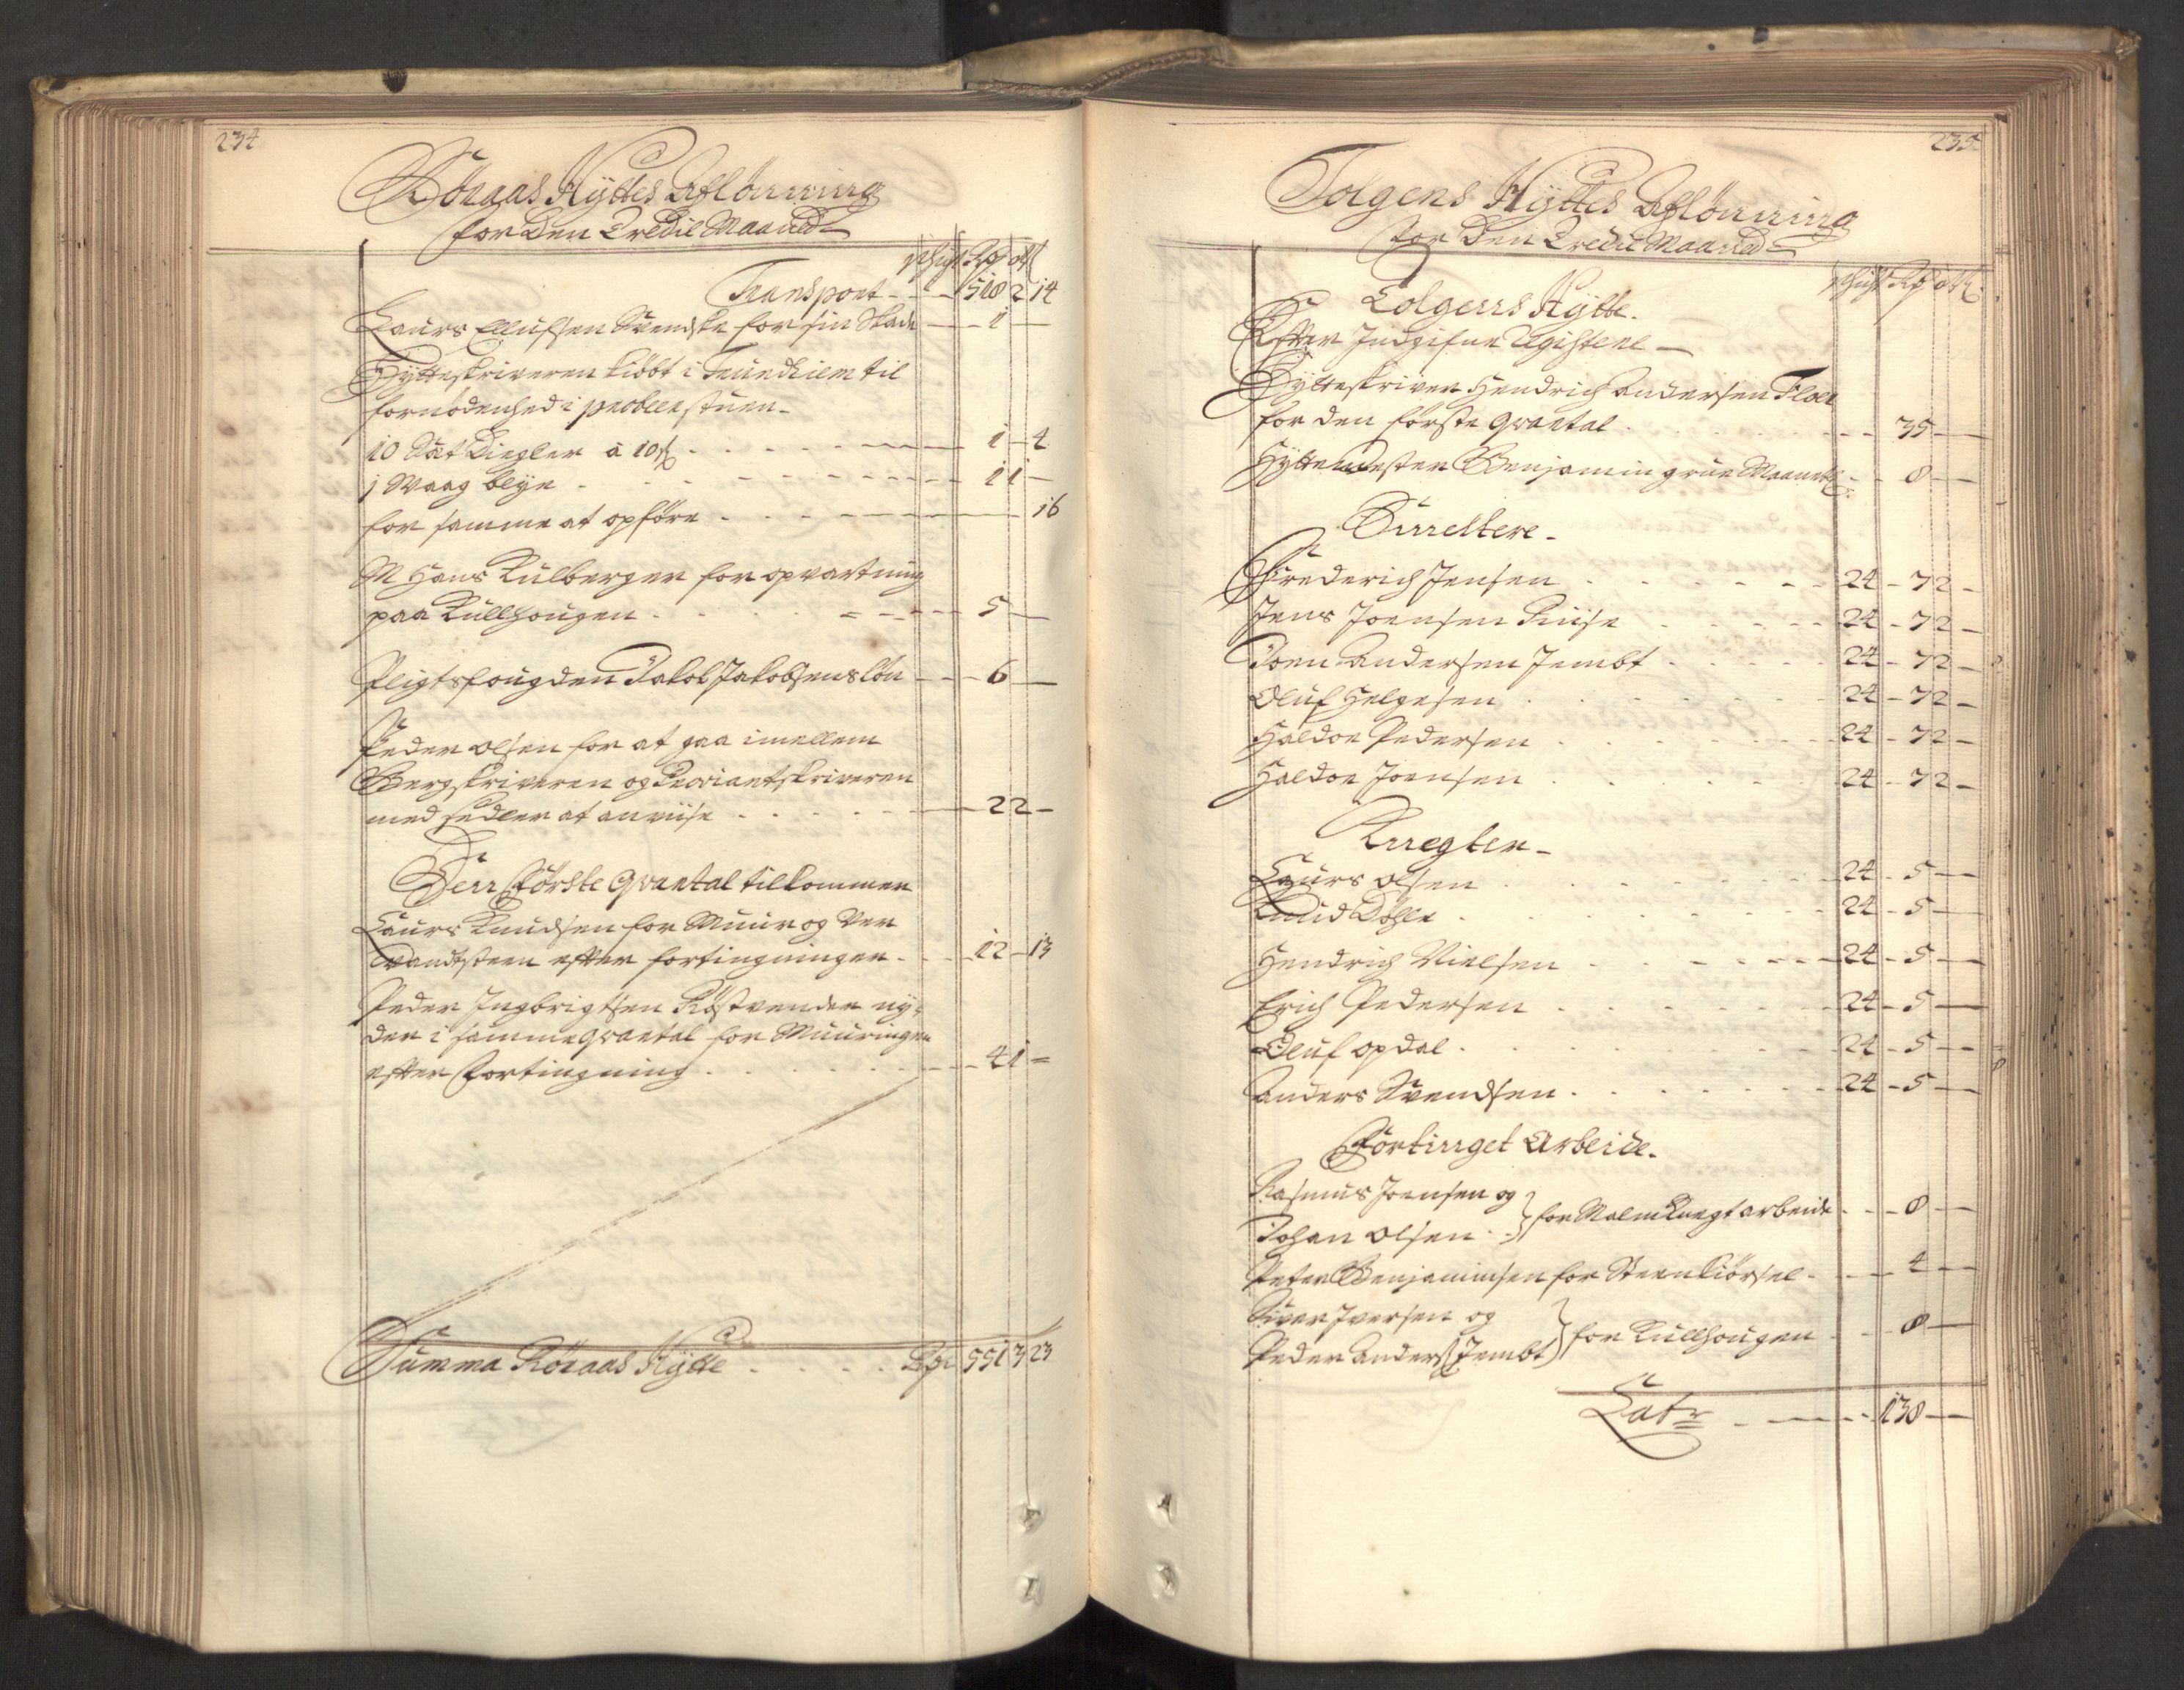 234
Röraas Hÿttes Aflönning
for Den Tredie Maaned
schigt Rdr ort ß
Transport - - - 518 2 14
Laurs Ellufsen Svenske for sin Skade - - 1 -
Hÿtteskriveren kiöbt i Trundhiem til
fornødenhed i probeerstuen -
10 Sat Diegler à 10 ß - - - 1 - 4
1 Waag blye - - - 1 1 -
for samme at opföre - - - 16
M Hans Kulberger for opvartning
paa Kullhougen - - - 5 -
Pligtsfougden Jakob Jakobsens lön - - 6 -
Peder Olsen for at gaa imellem
Bergskriveren og Proviantskriveren
med sedler at anviise - - - 2 2 -
Den förste Qvartal tilkommer
Laurs Knudsen for Muur og
Vandsteen efter fortingningen - - 12 - 13
Peder Ingbrigtsen Röstvender nÿ-
der i samme Qvartal for Muuringen
efter fortingning - - - 4 1 -
Summa Röraas Hÿtte - - - Rdr 551 3 23
235
Tolgens Hÿttes Aflönning
for Den Tredie Maaned
schigt Rdr ort ß
Tolgens Hÿtte.
Efter Indgifne Registere -
Hÿtteskriver Hendrich Andersen Floer
for den förste Qvartal - - - 35 -
Hÿttemester Benjamin grue Maanetl - - 8 -
Smeltere -
Frederich Jensen - - - 24 - 7 2 -
Jens Joensen Kuise - - - 24 - 7 2 -
Joen Andersen Jembt - - - 24 - 7 2 -
Oluf Helgesen - - - 24 - 7 2 -
Haldor Pedersen - - - 24 - 7 2 -
Haldor Joensen - - - 24 - 7 2 -
Knegter -
Laurs Olsen - - - 24 - 5 -
Knud Döhle - - - 24 - 5 -
Hendrich Nielsen - - - 24 - 5 -
Erich Pedersen - - - 24 - 5 -
Oluf Opdal - - - 24 - 5 -
Anders Svendsen - - - 24 - 5 -
Fortinget Arbeide.
Rasmus Joensen og
Johan Olsen } for Malm Knegt arbeide - - 8 -
Peter Benjaminsen for Steenkiörsel - - 4 -
Siver Iversen og
Peder Anders: Jembt } for Kullhougen - - 8 -
Latr - - - 138 -